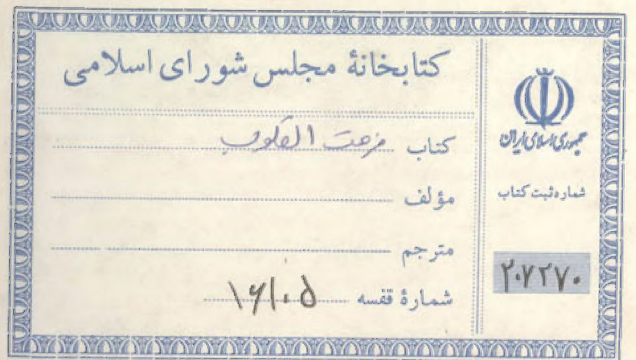 کتابخانهٔ مجلس شورای اسلامی
کتاب فرحت القلوب
مؤلف
مترجم
شمارهٔ قفسه ۱۶۱۰۵
جمهوری اسلامی ایران
شماره ثبت کتاب
۲۰۷۲۷۰